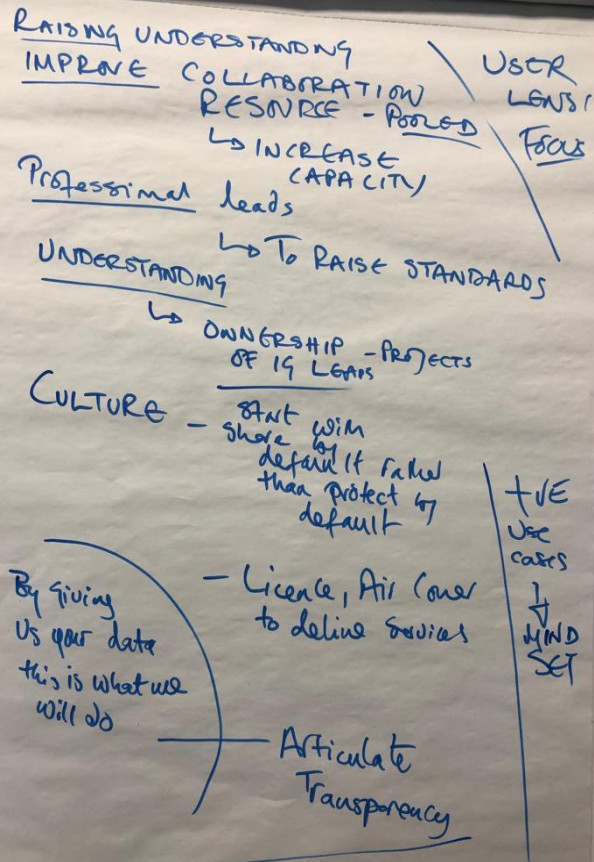 RAISING UNDERSTANDING
IMPROVE COLLABORATION
RESOURCE - POOLED
↳ INCREASE
CAPACITY
USER
LENS/
FOCUS
Professional leads
↳ To RAISE STANDARDS
UNDERSTANDING
↳ OWNERSHIP - PROJECTS
OF IG LEADS
CULTURE - Start with
share by
default rather
than protect by
default
+VE
USE
cases
↓
MIND
SET
- Licence, Air Cover
to deliver services
By giving
Us your data
this is what we
will do
Articulate
Transparency